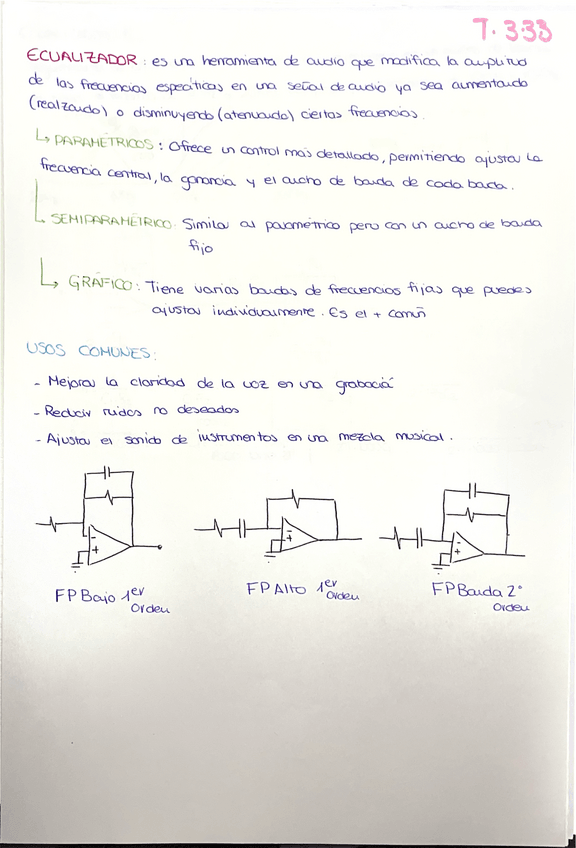 T.3.33
ECUALIZADOR: es una herramienta de audio que modifica la amplitud
de las frecuencias específicas en una señal de audio ya sea aumentando
(realzando) o disminuyendo (atenuando) ciertas frecuencias.
↳ PARAMÉTRICOS: Ofrece un control más detallado, permitiendo ajustar la
frecuencia central, la ganancia y el ancho de banda de cada banda.
SEMIPARAMÉTRICO: Similar al paramétrico pero con un ancho de banda
fijo
↳ GRÁFICO: Tiene varias bandas de frecuencias fijas que puedes
ajustar individualmente. Es el + común
USOS COMUNES:
- Mejorar la claridad de la voz en una grabación
- Reducir ruidos no deseados
- Ajustar el sonido de instrumentos en una mezcla musical.
- +
- +
- +
FPBajo 1er Orden
FPAlto 1er Orden
FPBanda 2° Orden